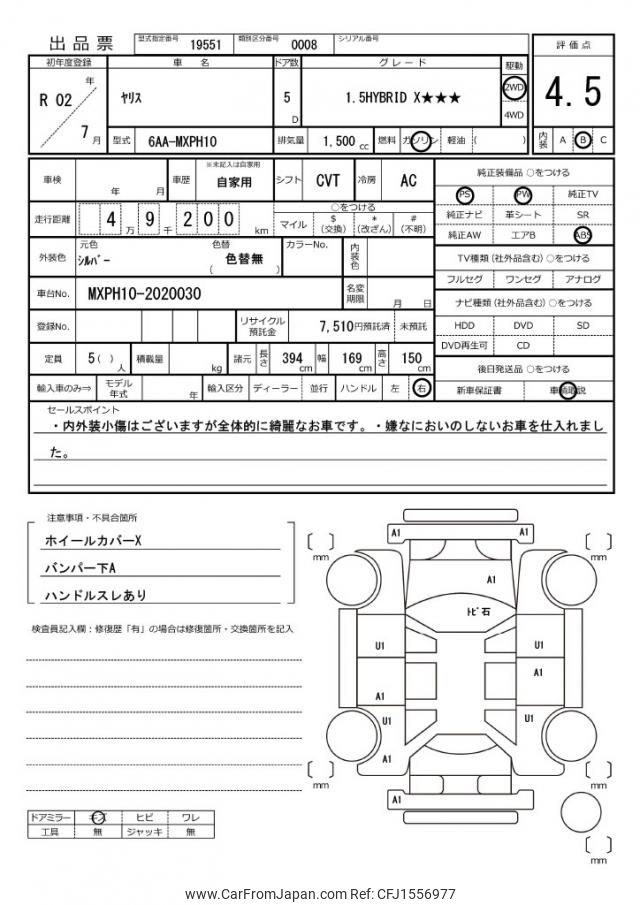 出品票 型式指定番号 19551 類別区分番号 0008 シリアル番号
評価点
4.5
内装 A B C
初年度登録 車名 ドア数 グレード 駆動
R 02 年 7 月
ヤリス 5 D 1.5HYBRID X★★★ 2WD 4WD
型式 6AA-MXPH10 排気量 1,500 cc 燃料 ガソリン 軽油 ( )
車検 年 月 車歴 ※未記入は自家用 自家用 シフト CVT 冷房 AC
純正装備品 ○をつける
PS PW 純正TV
純正ナビ 革シート SR
純正AW エアB ABS
走行距離 4 万 9 千 2 0 0 km
○をつける
マイル $ (交換) * (改ざん) # (不明)
外装色 元色 シルバー 色替 ( 色替無 ) カラーNo. 内装色
TV種類 (社外品含む) ○をつける
フルセグ ワンセグ アナログ
車台No. MXPH10-2020030 名変期限 月 日
ナビ種類 (社外品含む) ○をつける
HDD DVD SD
DVD再生可 CD
登録No. リサイクル預託金 7,510円預託済 未預託
定員 5 ( ) 人 積載量 kg 諸元 長さ 394 cm 幅 169 cm 高さ 150 cm
後日発送品 ○をつける
新車保証書 車輌取説
輸入車のみ⇒ モデル年式 年 輸入区分 ディーラー 並行 ハンドル 左 右
セールスポイント
・内外装小傷はございますが全体的に綺麗なお車です。・嫌なにおいのしないお車を仕入れまし
た。
注意事項・不具合箇所
ホイールカバーX
バンパー下A
ハンドルスレあり
検査員記入欄：修復歴「有」の場合は修復箇所・交換箇所を記入
A1 A1
mm mm
A1
トビ石
U1 U1
A1 A1
U1 U1
A1
mm mm
A1
mm
ドアミラー キズ ヒビ ワレ
工具 無 ジャッキ 無
www.CarFromJapan.com Ref: CFJ1556977